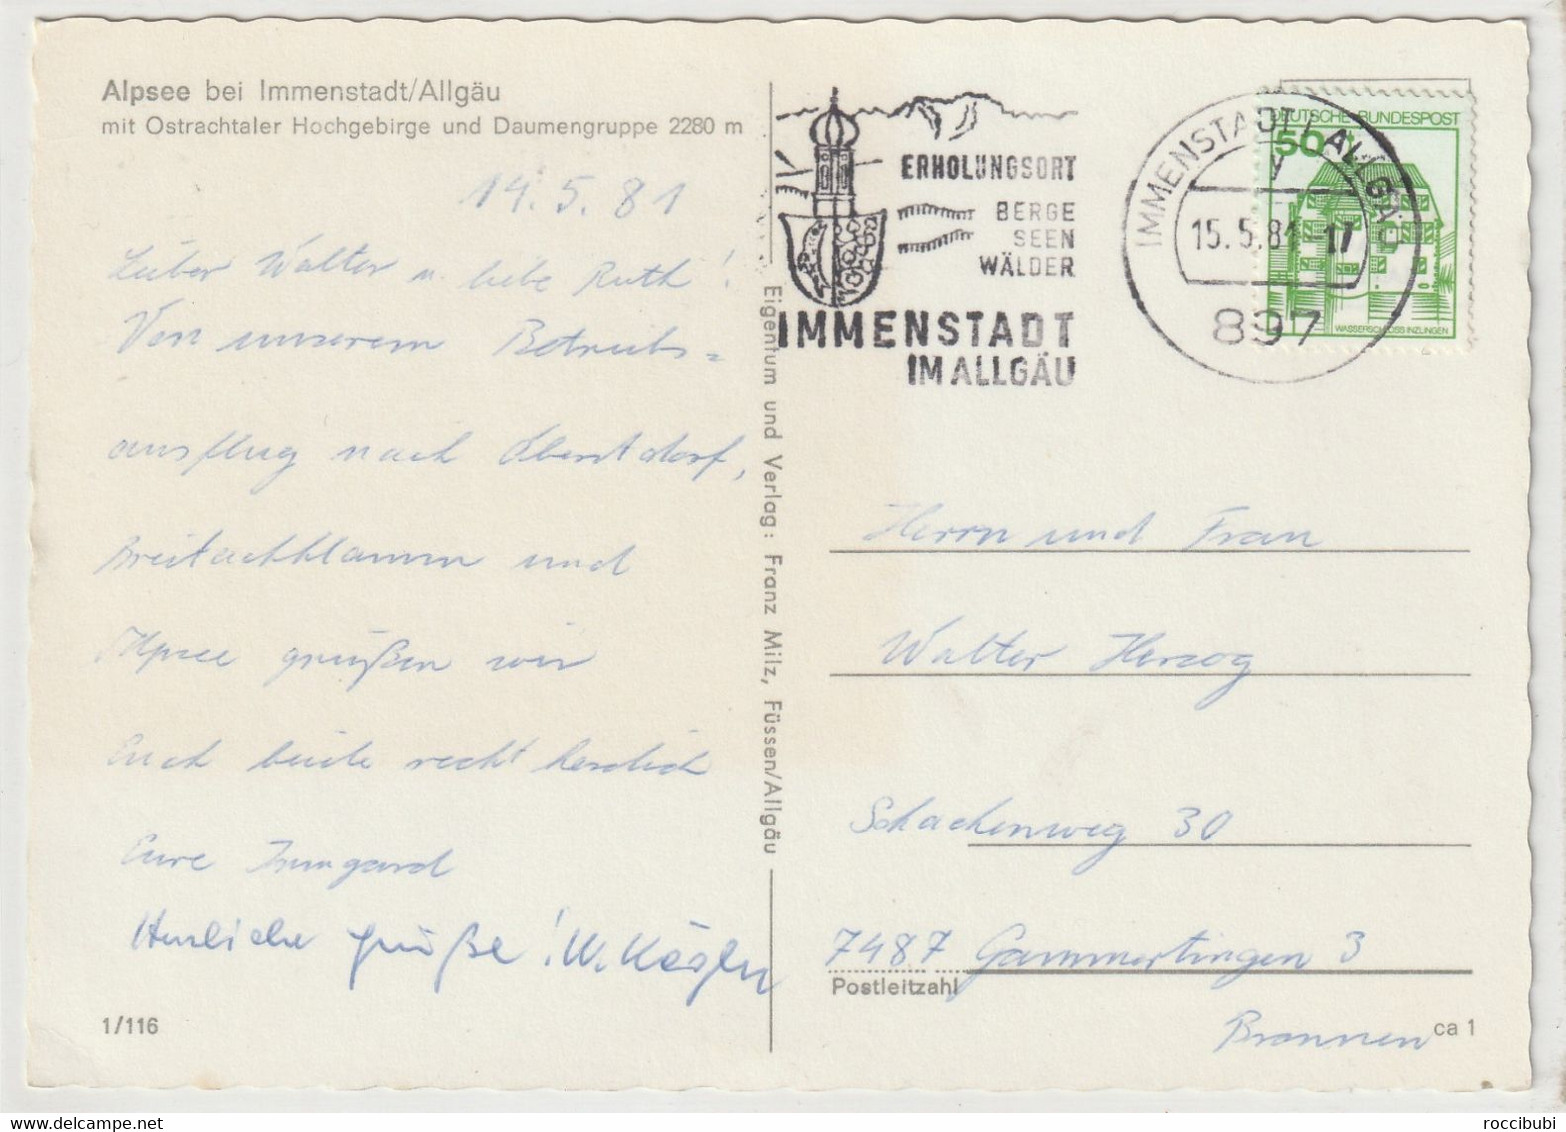 Alpsee bei Immenstadt/Allgäu
mit Ostrachtaler Hochgebirge und Daumengruppe 2280 m
14.5.81
Lieber Walter u. liebe Ruth!
Von unserem Betriebs=
ausflug nach Oberstdorf,
Breitachklamm und
Alpsee grüßen wir
Euch beide recht herzlich
Eure Irmgard
Herzliche Grüße! W. Kögler
1/116
Eigentum und Verlag: Franz Milz, Füssen/Allgäu
ERHOLUNGSORT
BERGE
SEEN
WÄLDER
IMMENSTADT
IM ALLGÄU
IMMENSTADT I. ALLGÄU
v
15.5.81-17
897
DEUTSCHE BUNDESPOST
50
WASSERSCHLOSS INZLINGEN
Herrn und Frau
Walter Herzog
Schachenweg 30
7487 Gammertingen 3
Postleitzahl
Bronnen
ca 1
roccibubi